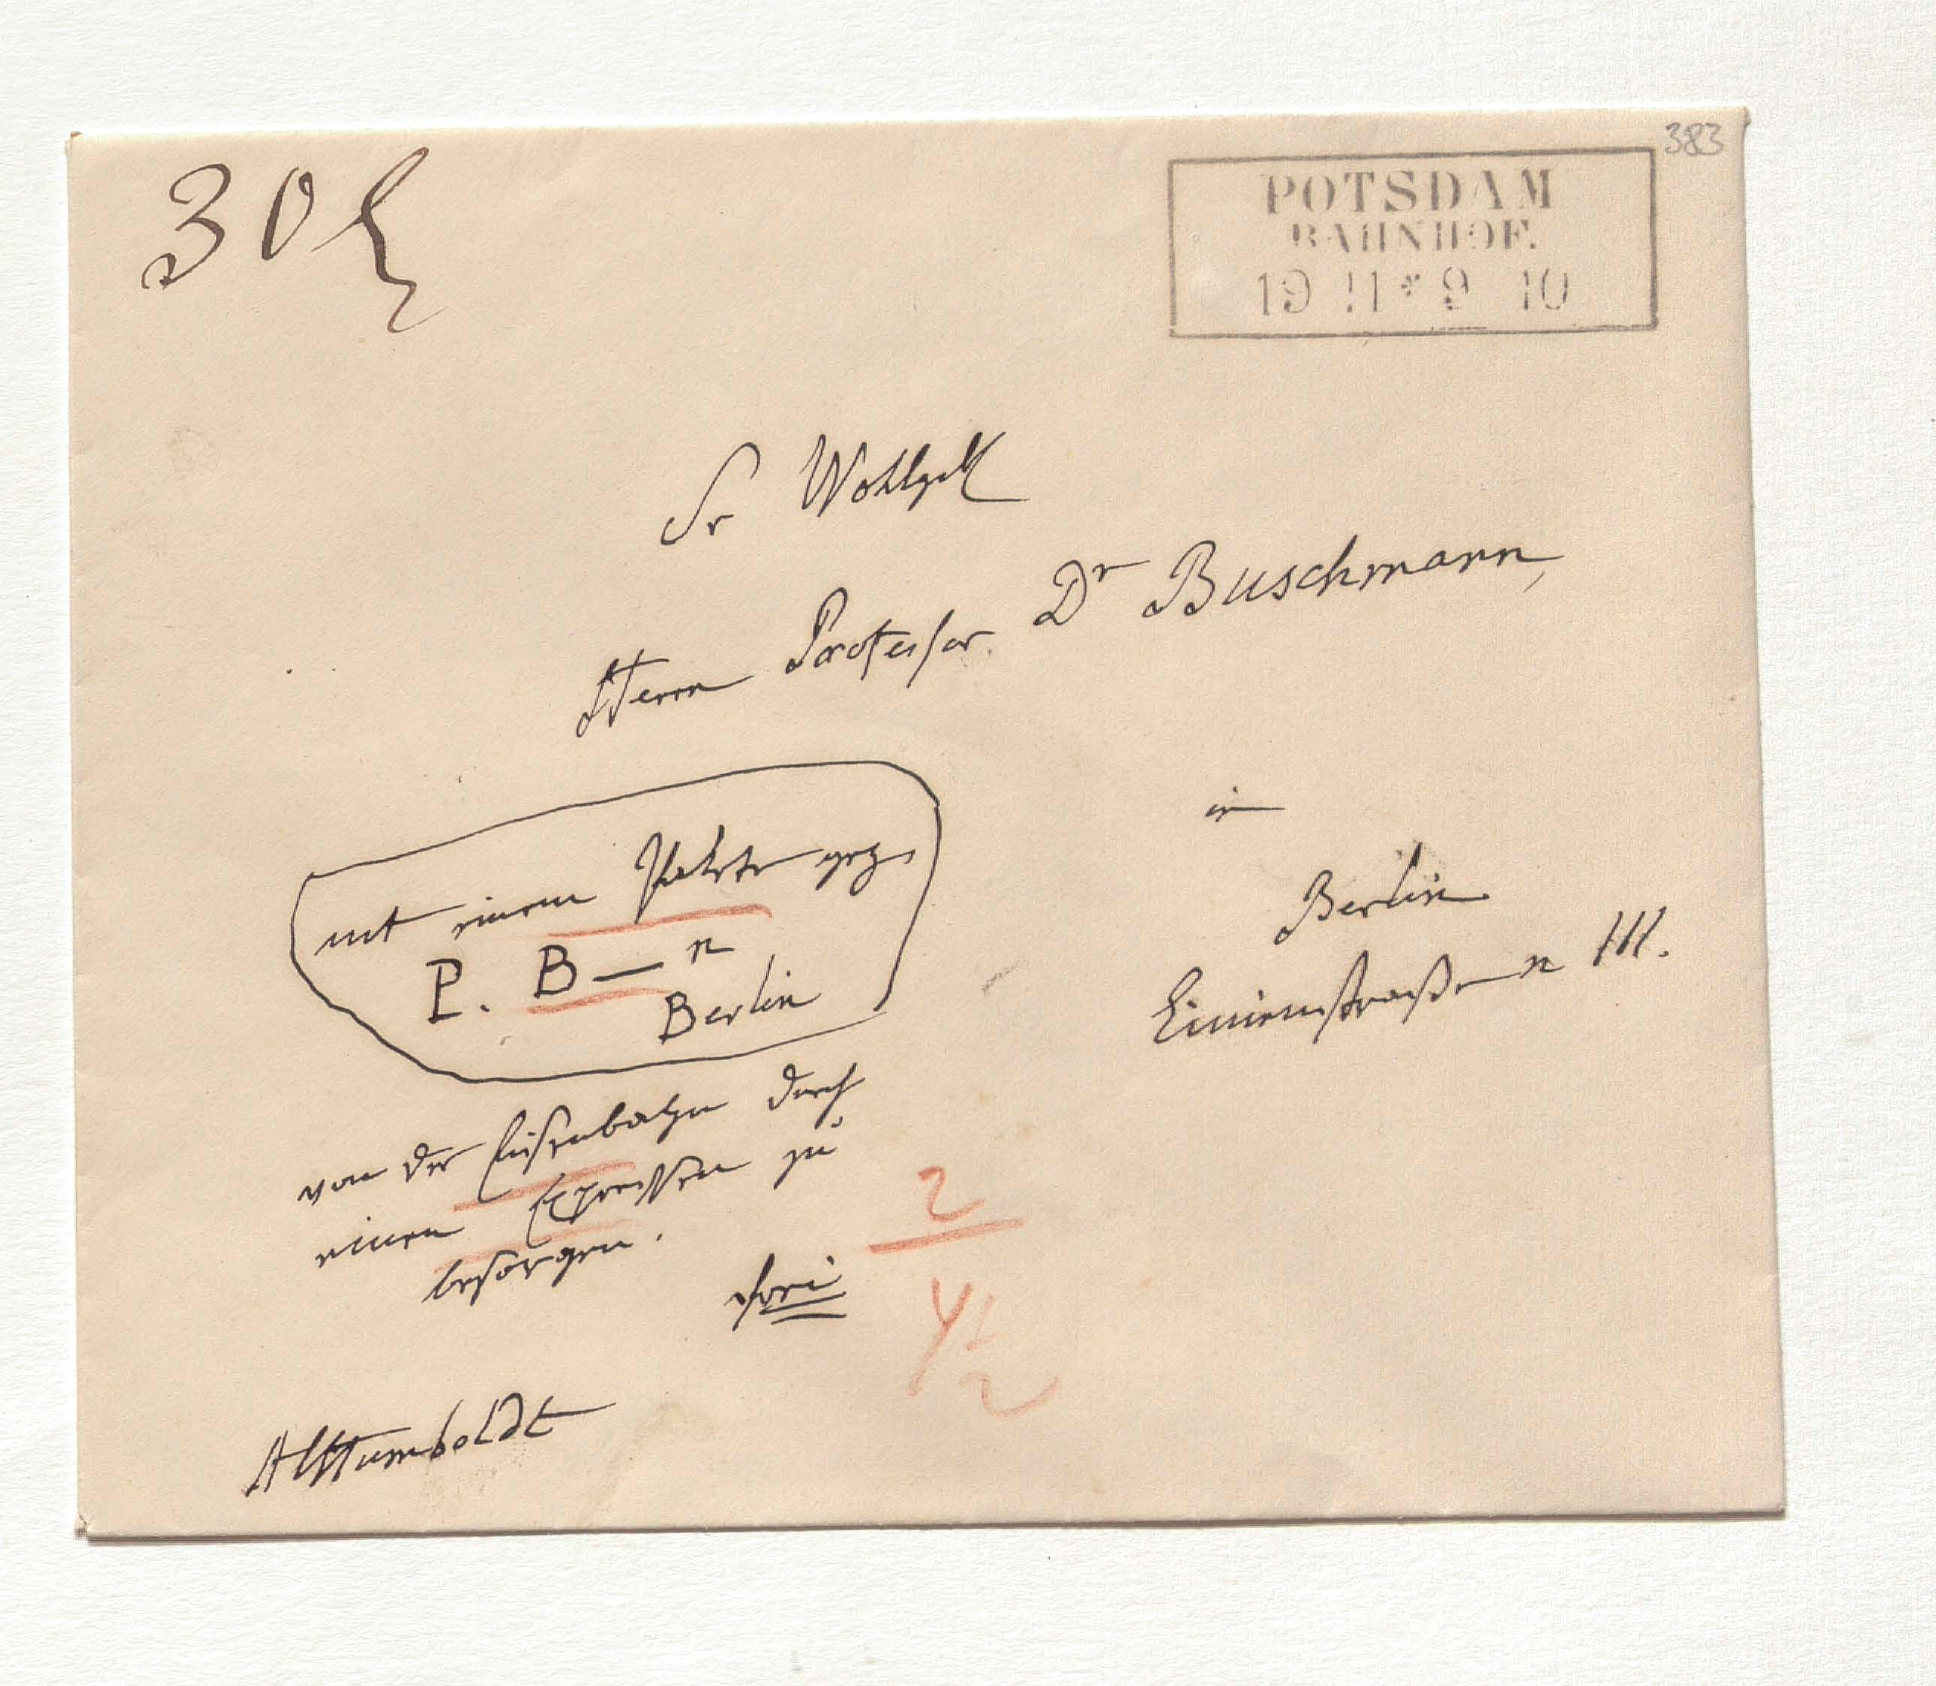 383
30
POTSDAM
BAHNHOF.
19 11 * 9 10
Sr Wohlgeb
Herrn Professor Dr Buschmann,
in
Berlin
Linienstraße n 111.
mit einem Pakete gez.
P. B—n
Berlin
von der Eisenbahn durch
einen Expressen zu
besorgen.
frei
2
4½
AlHumboldt